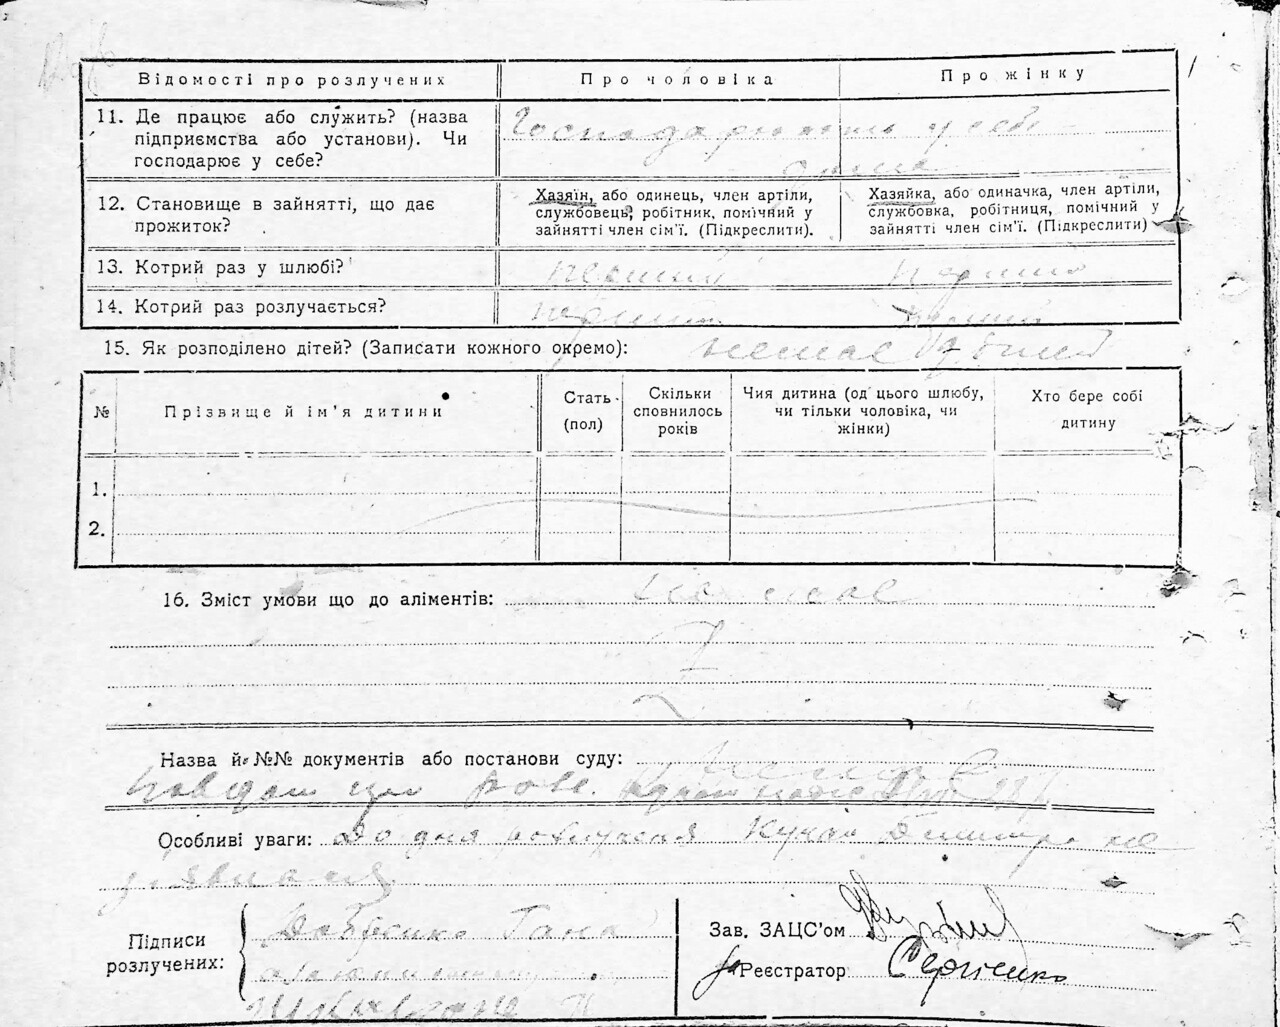 Відомості про розлучених
Про чоловіка
Про жінку
11. Де працює або служить? (назва
підприємства або установи). Чи
господарює у себе?
Господарюють у себе
12. Становище в зайнятті, що дає
прожиток?
Хазяїн, або одинець, член артіли,
службовець, робітник, помічний у
зайнятті член сім'ї. (Підкреслити).
Хазяйка, або одиначка, член артіли,
службовка, робітниця, помічний у
зайнятті член сім'ї. (Підкреслити)
13. Котрий раз у шлюбі?
перший
перший
14. Котрий раз розлучається?
перший
перший
15. Як розподілено дітей? (Записати кожного окремо):
немає
№
Прізвище й ім'я дитини
Стать
(пол)
Скільки
сповнилось
років
Чия дитина (од цього шлюбу,
чи тільки чоловіка, чи
жінки)
Хто бере собі
дитину
1.
2.
16. Зміст умови що до аліментів: немає
Назва й №№ документів або постанови суду:
Особливі уваги: До дня розлучення Кучер не
зявився
Підписи
розлучених:
Гана
Зав. ЗАЦС'ом
Реєстратор Сергієнко